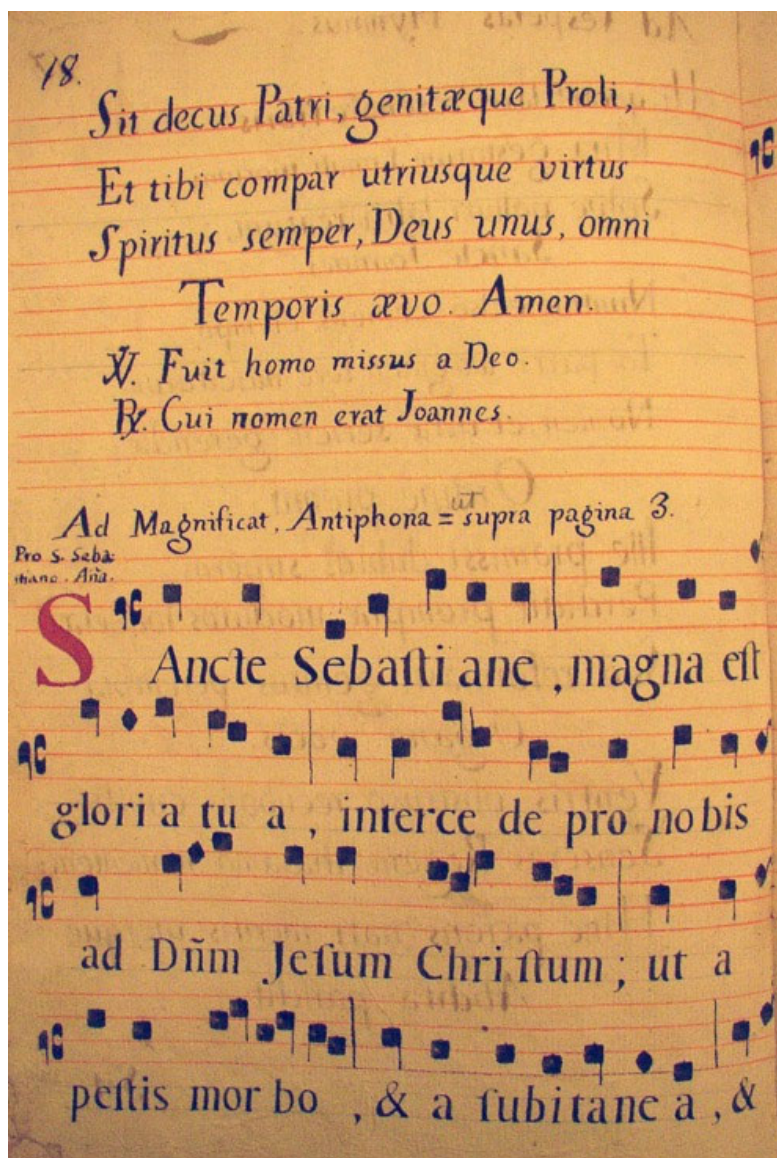 18.
Sit decus Patri, genitæque Proli,
Et tibi compar utriusque virtus
Spiritus semper, Deus unus, omni
Temporis ævo. Amen.
℣. Fuit homo missus a Deo.
℟. Cui nomen erat Joannes
Ad Magnificat, Antiphona = ut supra pagina 3.
Pro S. Seba:
stiano. Aña.
SAncte Sebaſti ane, magna eſt
glori a tu a, interce de pro nobis
ad Dñm Jeſum Chri ſtum; ut a
peſtis mor bo, & a ſubitane a, &